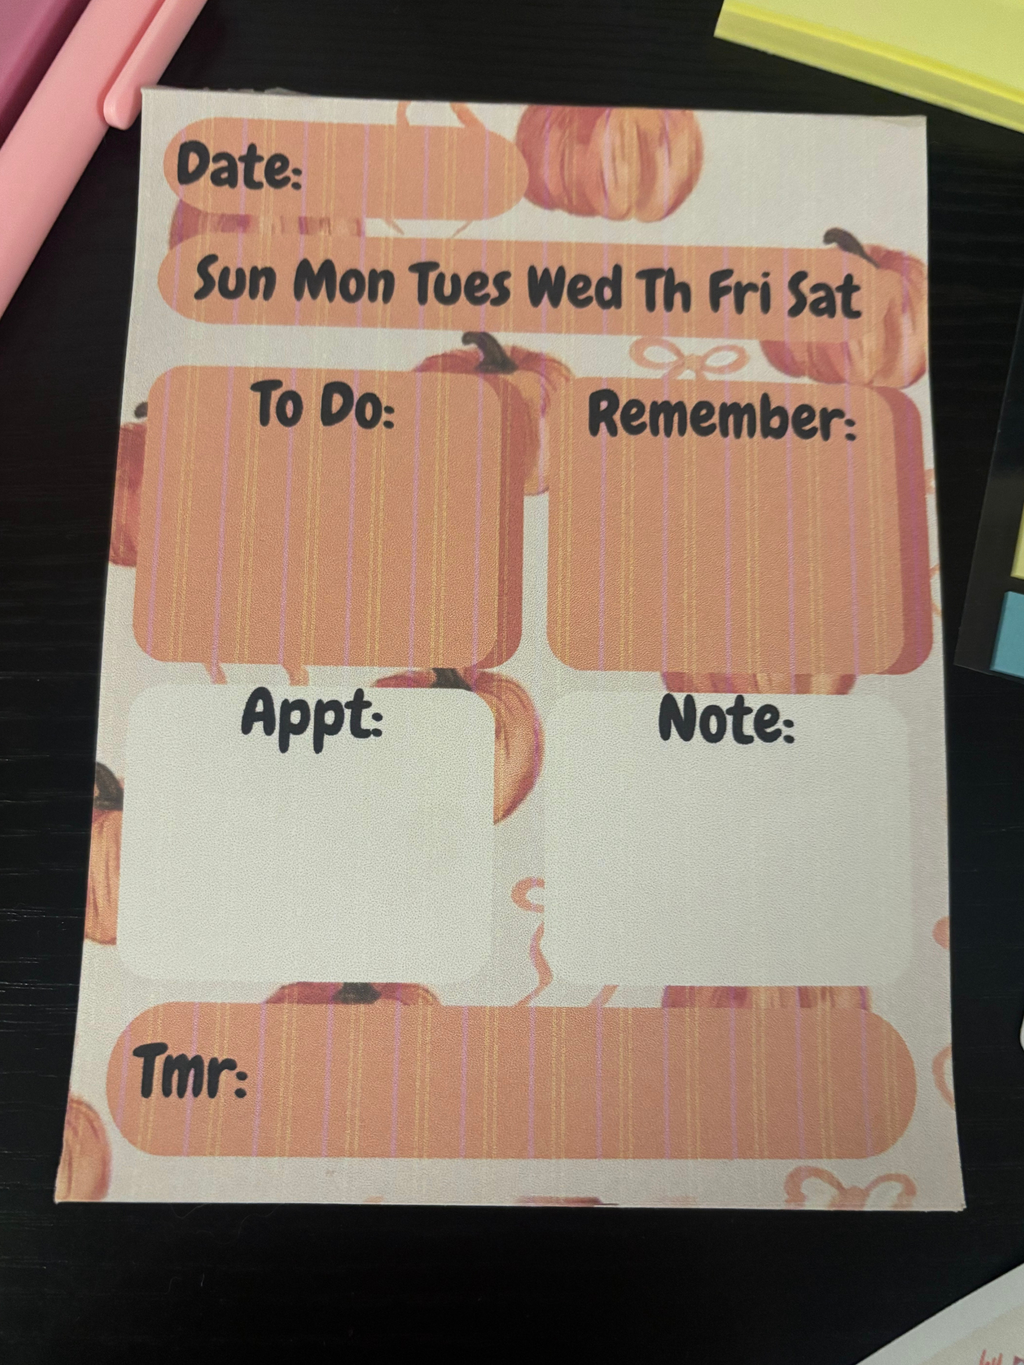 Date:
Sun Mon Tues Wed Th Fri Sat
To Do:
Remember:
Appt:
Note:
Tmr: